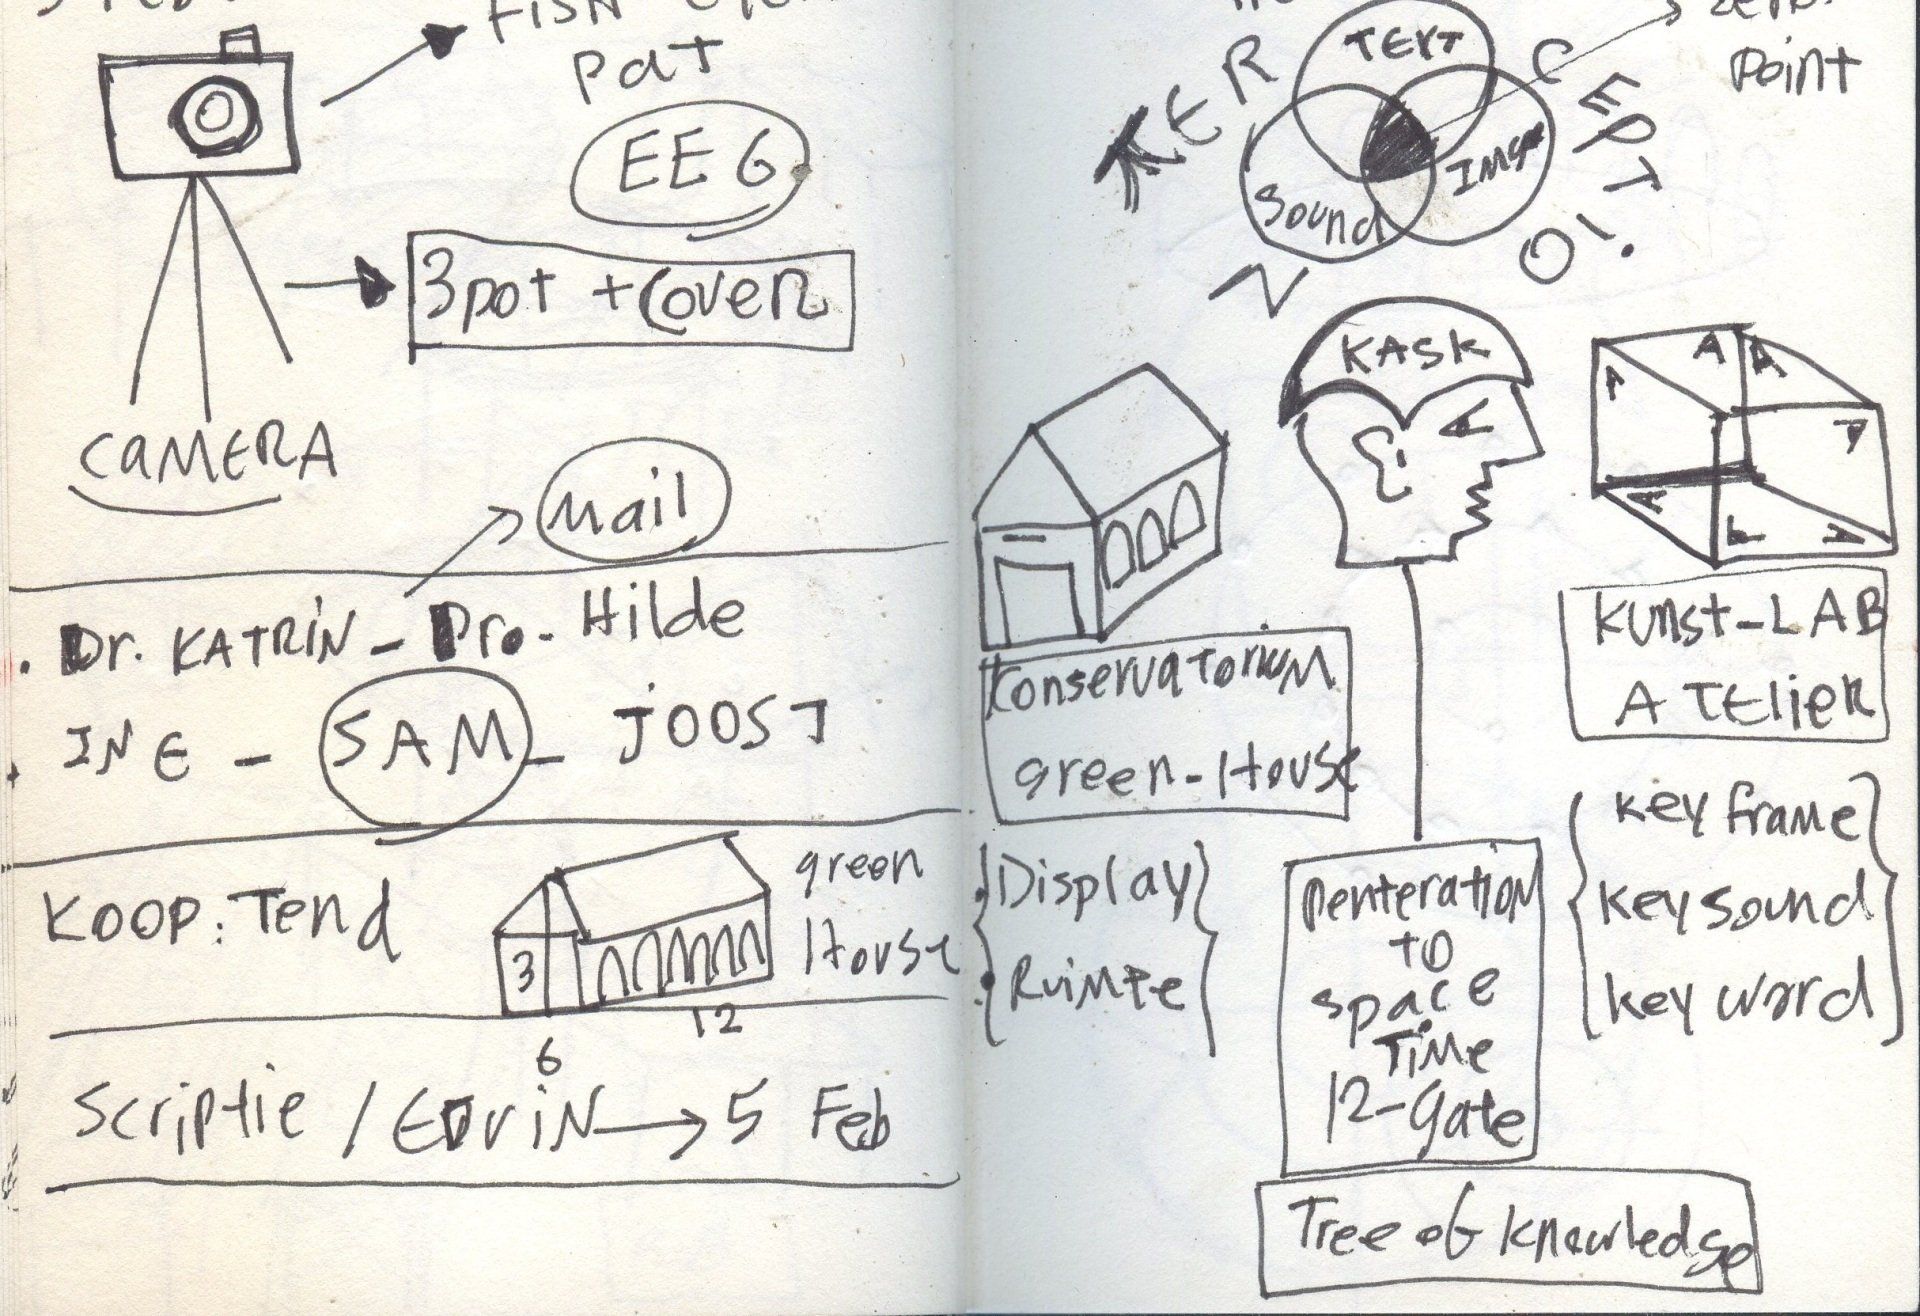 FISH
pat
EEG
3pot + Cover
CAMERA
Mail
Dr. KATRIN - Pro. Hilde
INE - SAM - JOOST
KOOP: Tend
green
House
3
12
6
Scriptie / EDVIN → 5 Feb
point
TEXT
Sound
IMG
NTER
CEPTIO
KASK
A A A
A A
A A A
Konservatorium
green-House
KUNST-LAB
ATELIER
Display
Ruimte
Penteration
TO
space
TIME
12-Gate
key frame
key sound
key word
Tree of knowledge